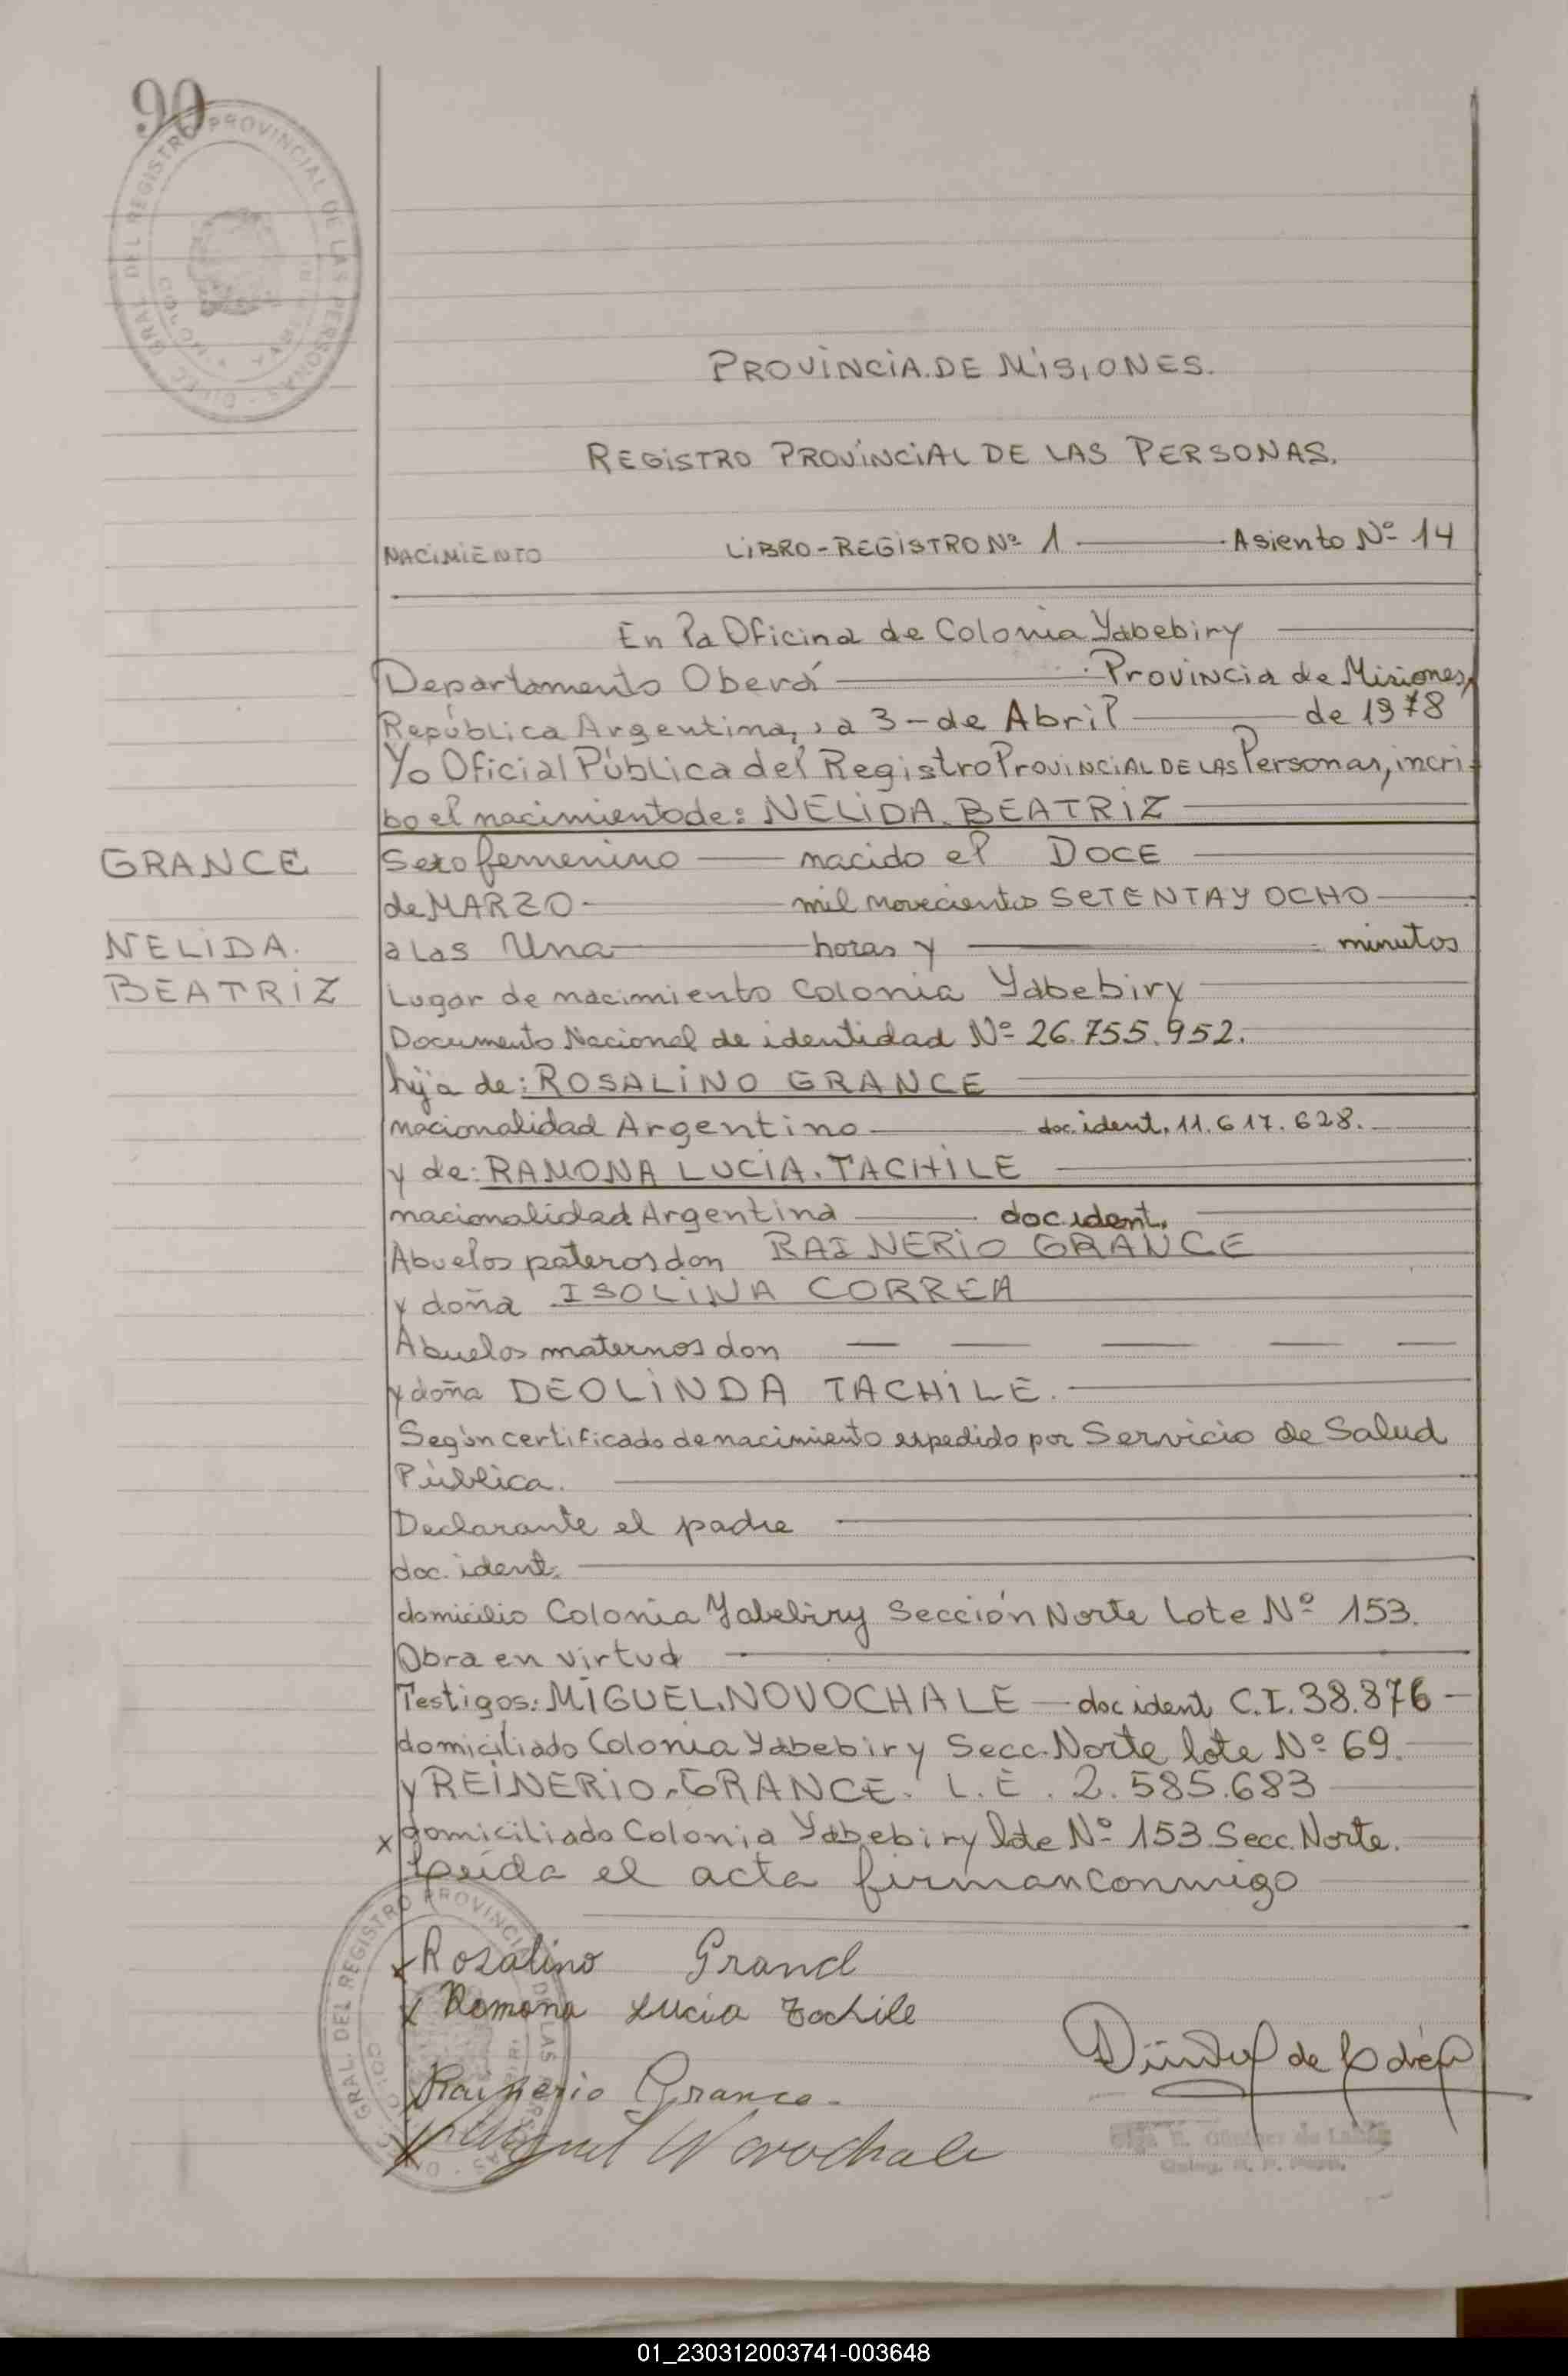 90
DIREC. GRAL. DEL REGISTRO PROVINCIAL DE LAS PERSONAS
PROVINCIA.DE MISIONES.
REGISTRO PROVINCIAL DE LAS PERSONAS.
NACIMIENTO LIBRO-REGISTRO Nº 1 Asiento Nº 14
En la Oficina de Colonia Yabebiry
Departamento Oberá Provincia de Misiones,
República Argentina, a 3-de Abril de 1978
Yo Oficial Pública del Registro PROVINCIAL DE LAS Personas, incri-
bo el nacimiento de: NELIDA.BEATRIZ
GRANCE Sexo femenino nacido el DOCE
de MARZO mil novecientos SETENTA Y OCHO
NELIDA. a las Una horas y minutos
BEATRIZ Lugar de nacimiento Colonia Yabebiry
Documento Nacional de identidad Nº 26.755.952.
hija de: ROSALINO GRANCE
nacionalidad Argentino doc.ident. 11.617.628.
y de: RAMONA LUCIA.TACHILE
nacionalidad Argentina doc.ident.
Abuelos pateros don RAINERIO GRANCE
y doña ISOLINA CORREA
Abuelos maternos don
y doña DEOLINDA TACHILE.
Según certificado de nacimiento expedido por Servicio de Salud
Pública.
Declarante el padre
doc. ident.
domicilio Colonia Yabebiry Sección Norte lote Nº 153.
Obra en virtud
Testigos: MIGUEL.NOVOCHALE doc ident C.I. 38.876
domiciliado Colonia Yabebiry Secc. Norte lote Nº 69.
y REINERIO.GRANCE. L.E. 2.585.683
x domiciliado Colonia Yabebiry lote Nº 153 Secc. Norte.
Leída el acta firman conmigo
x Rosalino Grand
x Ramona Lucia Tachile
Rainerio Grance.
x Miguel Novochale
DIREC. GRAL. DEL REGISTRO PROVINCIAL DE LAS PERSONAS
01_230312003741-003648